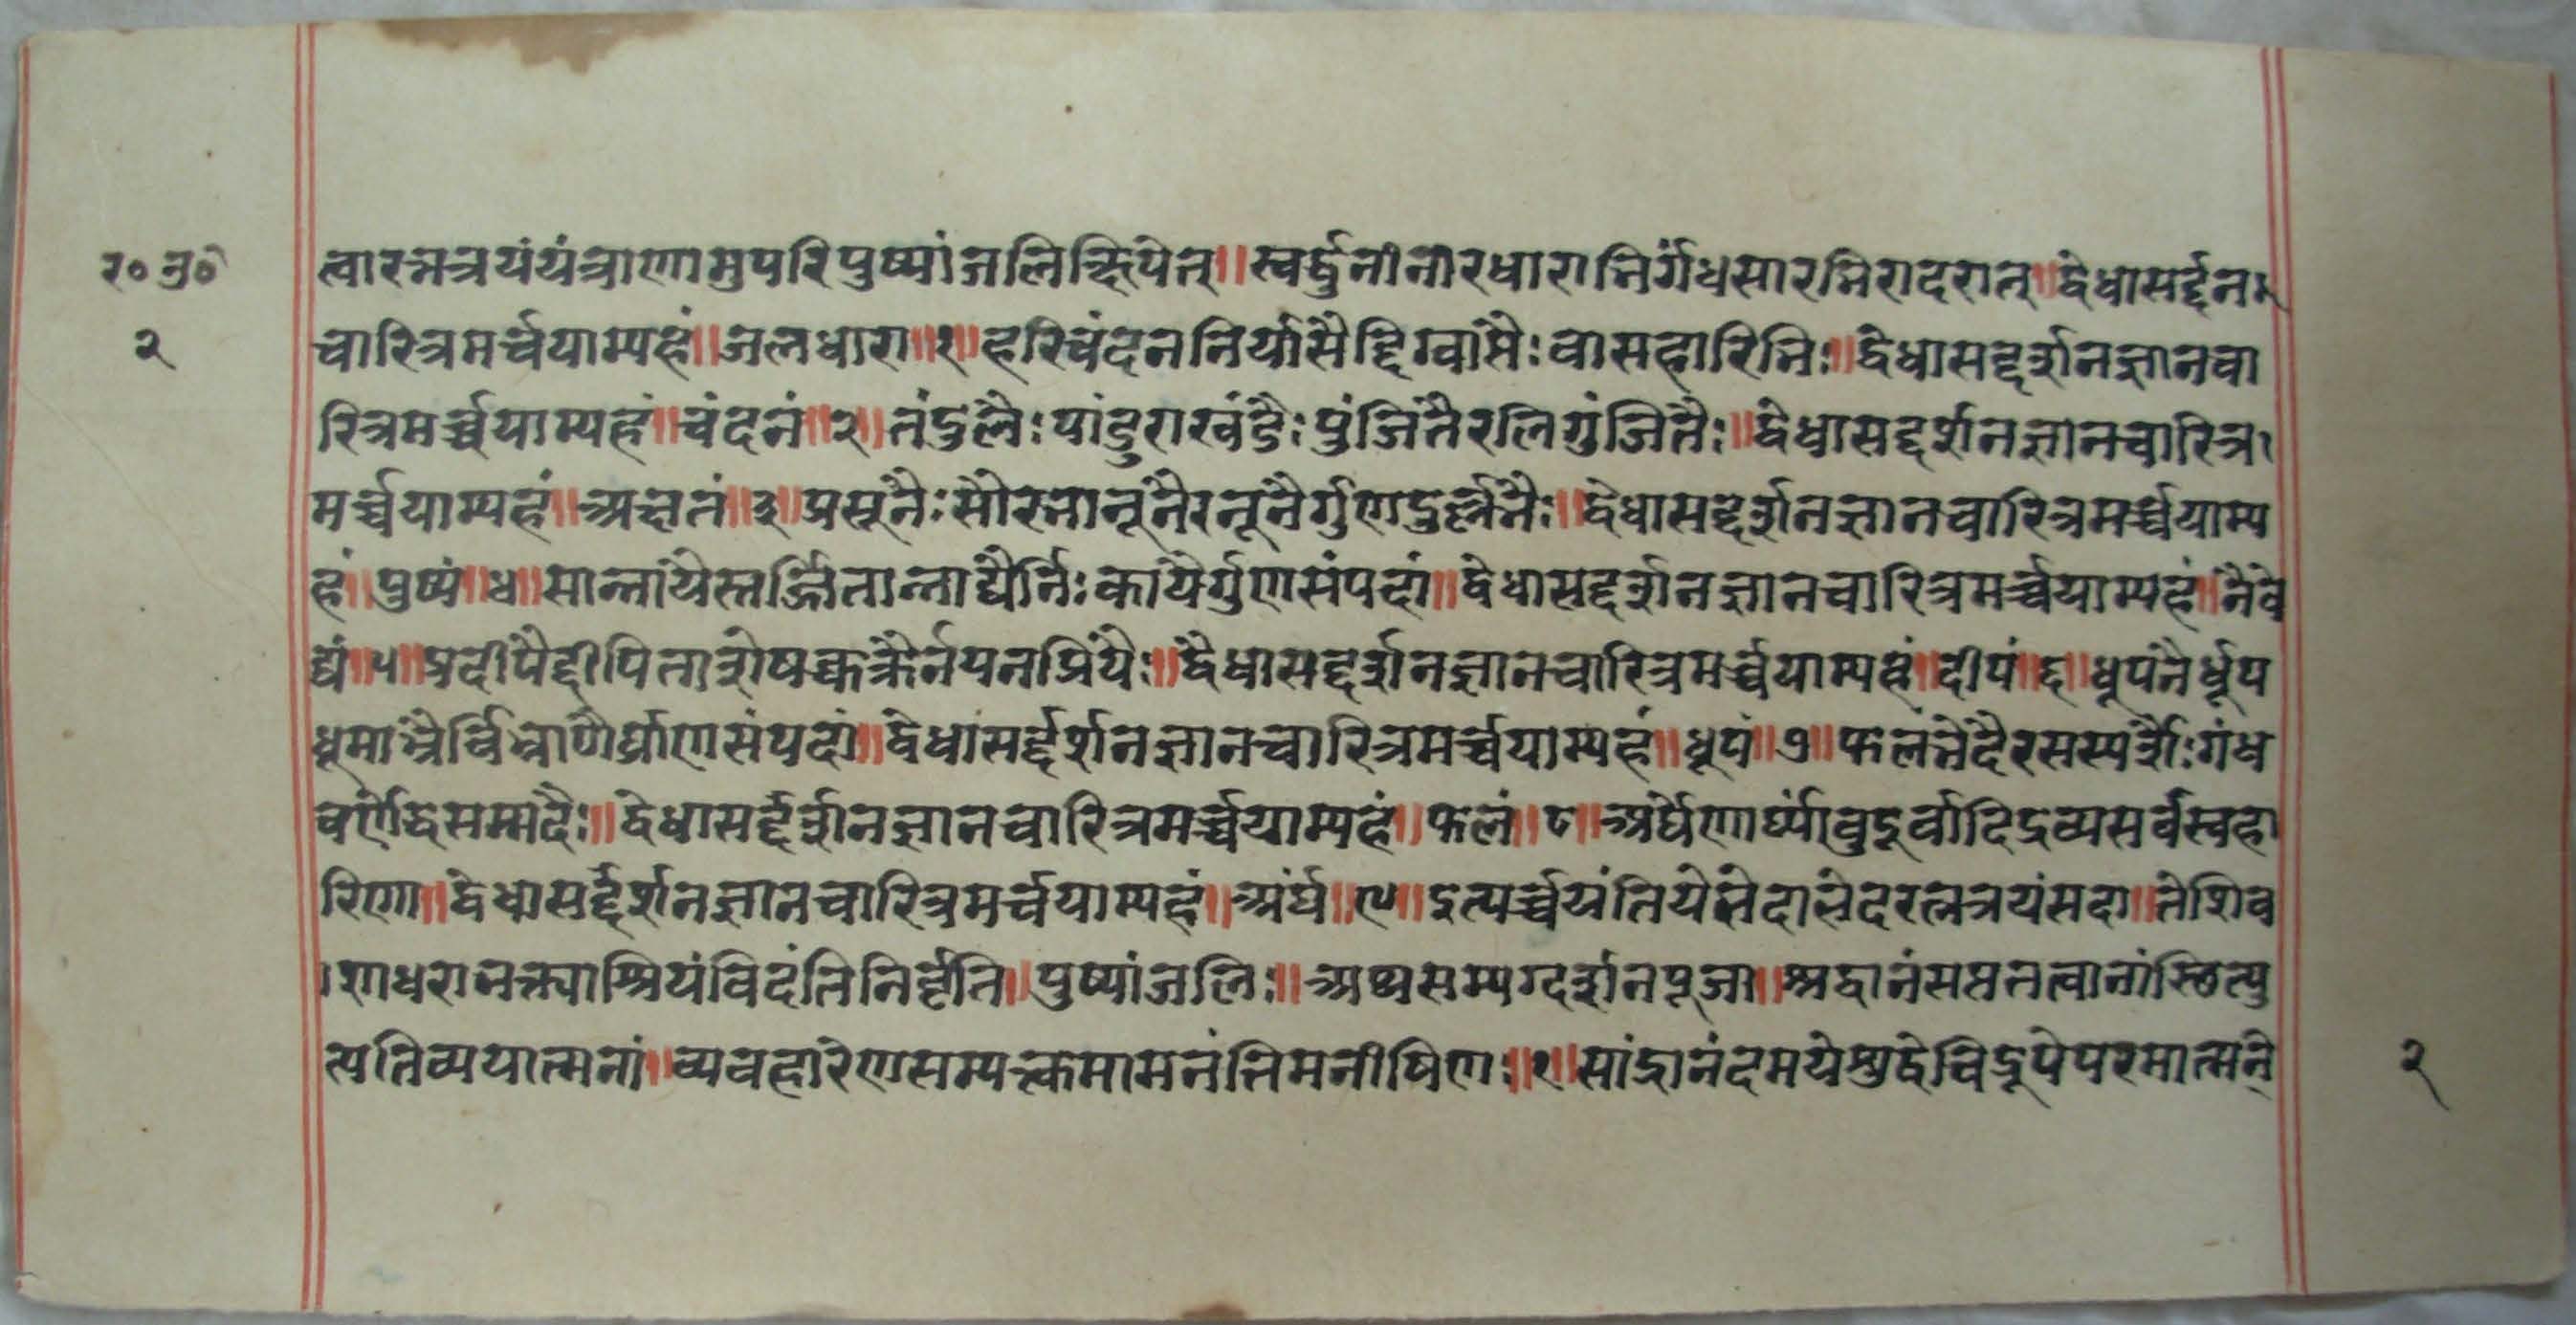 र० जु०
२
त्वारत्नत्रययंत्राणामुपरिपुष्पांजलिंक्षिपेत्॥स्वर्द्धुनीनीरधाराभिर्गंधसारभिरादरात्॥द्वेधासर्द्दनज्ञा
चारित्रमर्च्चयाम्यहं॥जलधारा॥१॥हरिचंदननिर्यासैर्द्दिग्वासैः वासहारिभिः॥द्वेधासद्दर्शनज्ञानचा
रित्रमर्च्चयाम्यहं॥चंदनं॥२॥तंदुलैः पांडुराखंडैः पुंजितैरलिगुंजितैः॥द्वेधासद्दर्शनज्ञानचारित्र
मर्च्चयाम्यहं॥अक्षतं॥३॥प्रसूनैः सौरभानूनैरनूनैर्गुण॥द्वेधासद्दर्शनज्ञानचारित्रमर्च्चयाम्य
हं॥पुष्पं॥४॥सान्नायैस्तर्ज्जितान्नाद्यैर्निः कायैर्गुणसंपदां॥द्वेधासद्दर्शनज्ञानचारित्रमर्च्चयाम्यहं॥नैवे
द्यं॥५॥प्रदीपैर्द्दीपिताशेषचक्रैर्नयनप्रियैः॥द्वैधासद्दर्शनज्ञानचारित्रमर्च्चयाम्यहं॥दीपं॥६॥धूपनैर्धूप
धूमाभ्रैर्विभ्राणैर्घ्राणसंपदां॥द्वेधासर्द्दर्शनज्ञानचारित्रमर्च्चयाम्यहं॥धूपं॥७॥रसस्पर्शैः गंध
वर्णर्द्धिसम्मदैः॥द्वेधासर्द्दर्शनज्ञानचारित्रमर्च्चयाम्यहं॥फलं॥८॥अर्घेणार्घ्यांबुदूर्वादिद्रव्यसर्वस्वहा
रिणा॥द्वेधासर्द्दर्शनज्ञानचारित्रमर्च्चयाम्यहं॥अर्घं॥९॥इत्यर्च्चयंतियेभेदाभेदरत्नत्रयंसदा॥तेशिव
शाधराभक्त्याश्रियंविदंतिनिर्वृति॥पुष्पांजलिः॥अथसम्यग्दर्शनपूजा॥श्रद्धानंसप्ततत्वानांस्थित्यु
त्पतिव्ययात्मनां॥व्यवहारेणसम्यत्क्तमामनंतिमनीषिणः॥१॥सांद्रानंदमयेशुद्धेचिद्रूपेपरमात्मनि
२